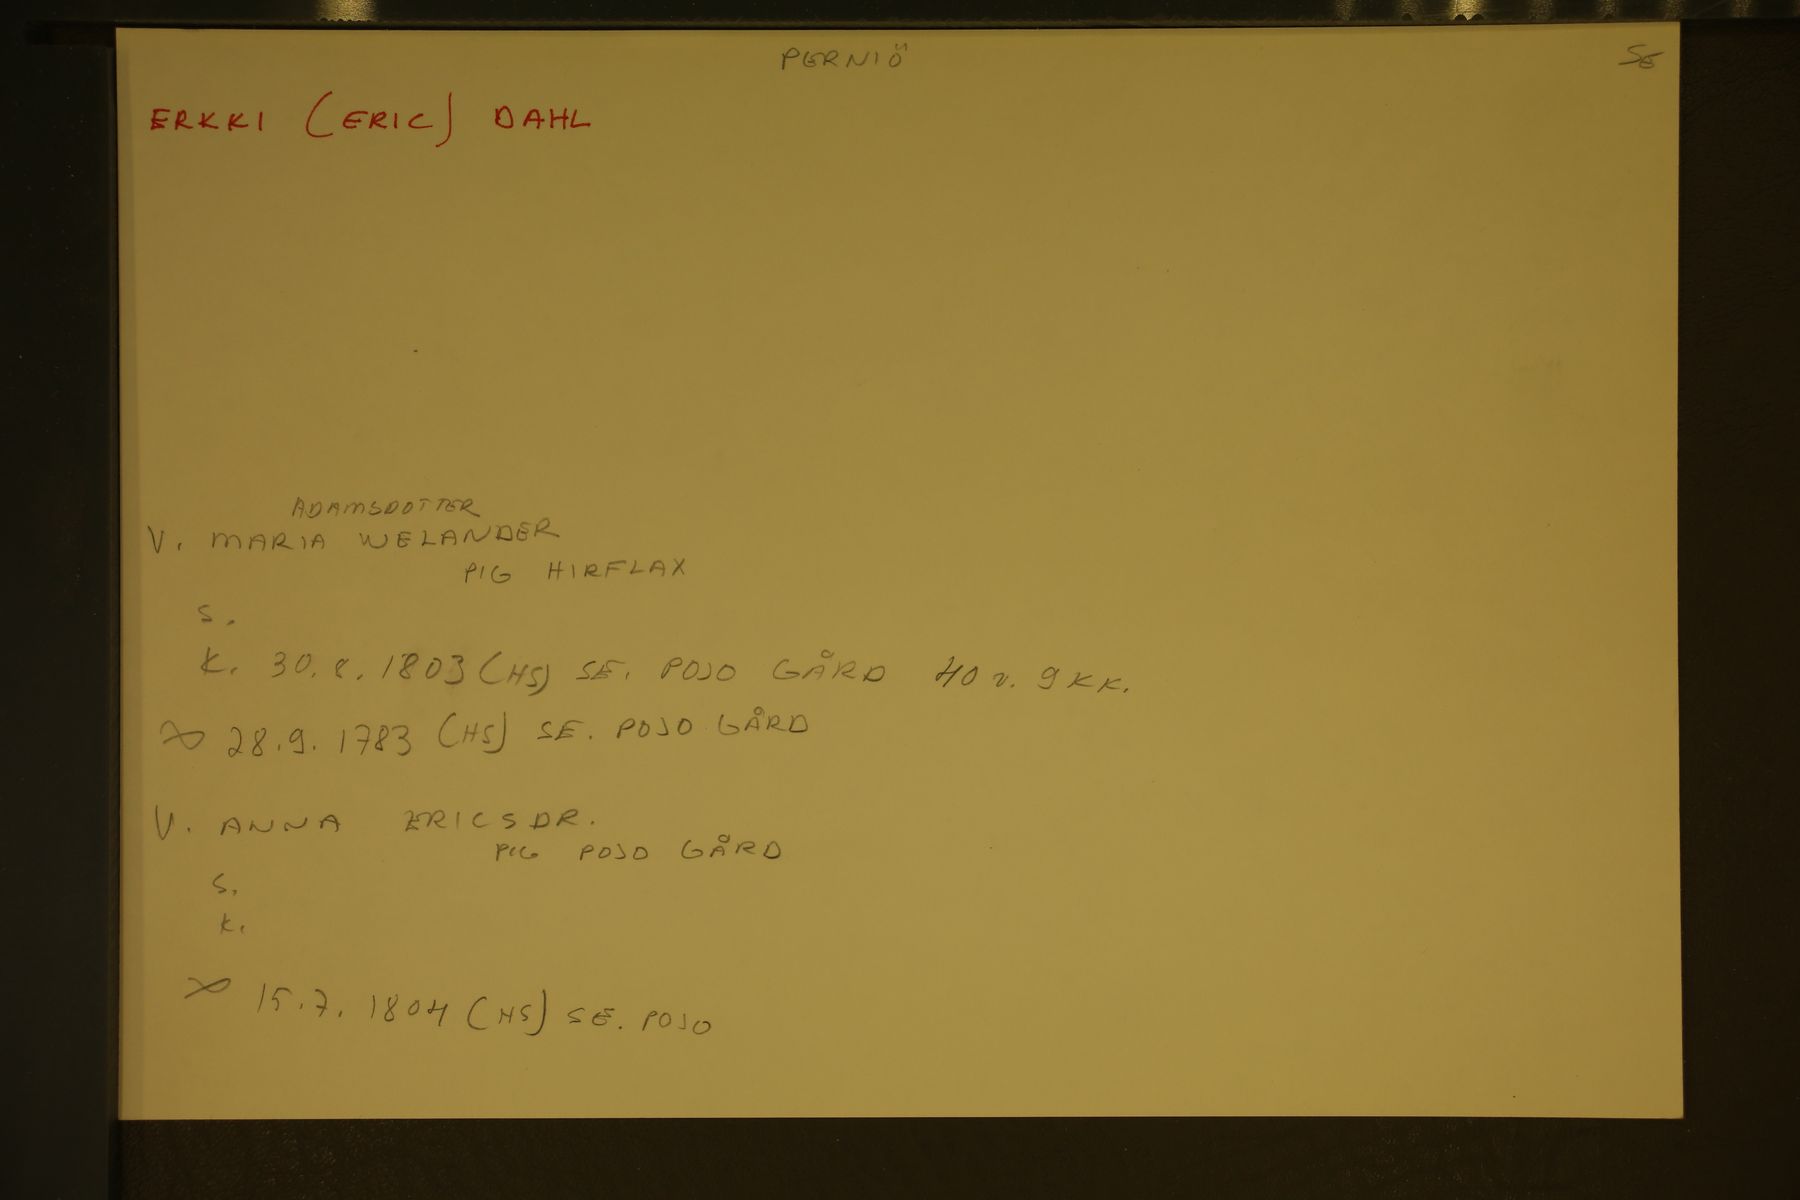 PERNIÖ
SE
ERKKI (ERIC) DAHL
ADAMSDOTTER
V. MARIA WELANDER
PIG HIRFLAX
S.
K. 30.8.1803 (HS) SE. POJO GÅRD 40 v. 9 KK.
∞ 28.9.1783 (HS) SE. POJO GÅRD
V. ANNA ERICSDR.
PIG POJO GÅRD
S.
K.
∞ 15.7.1804 (HS) SE. POJO